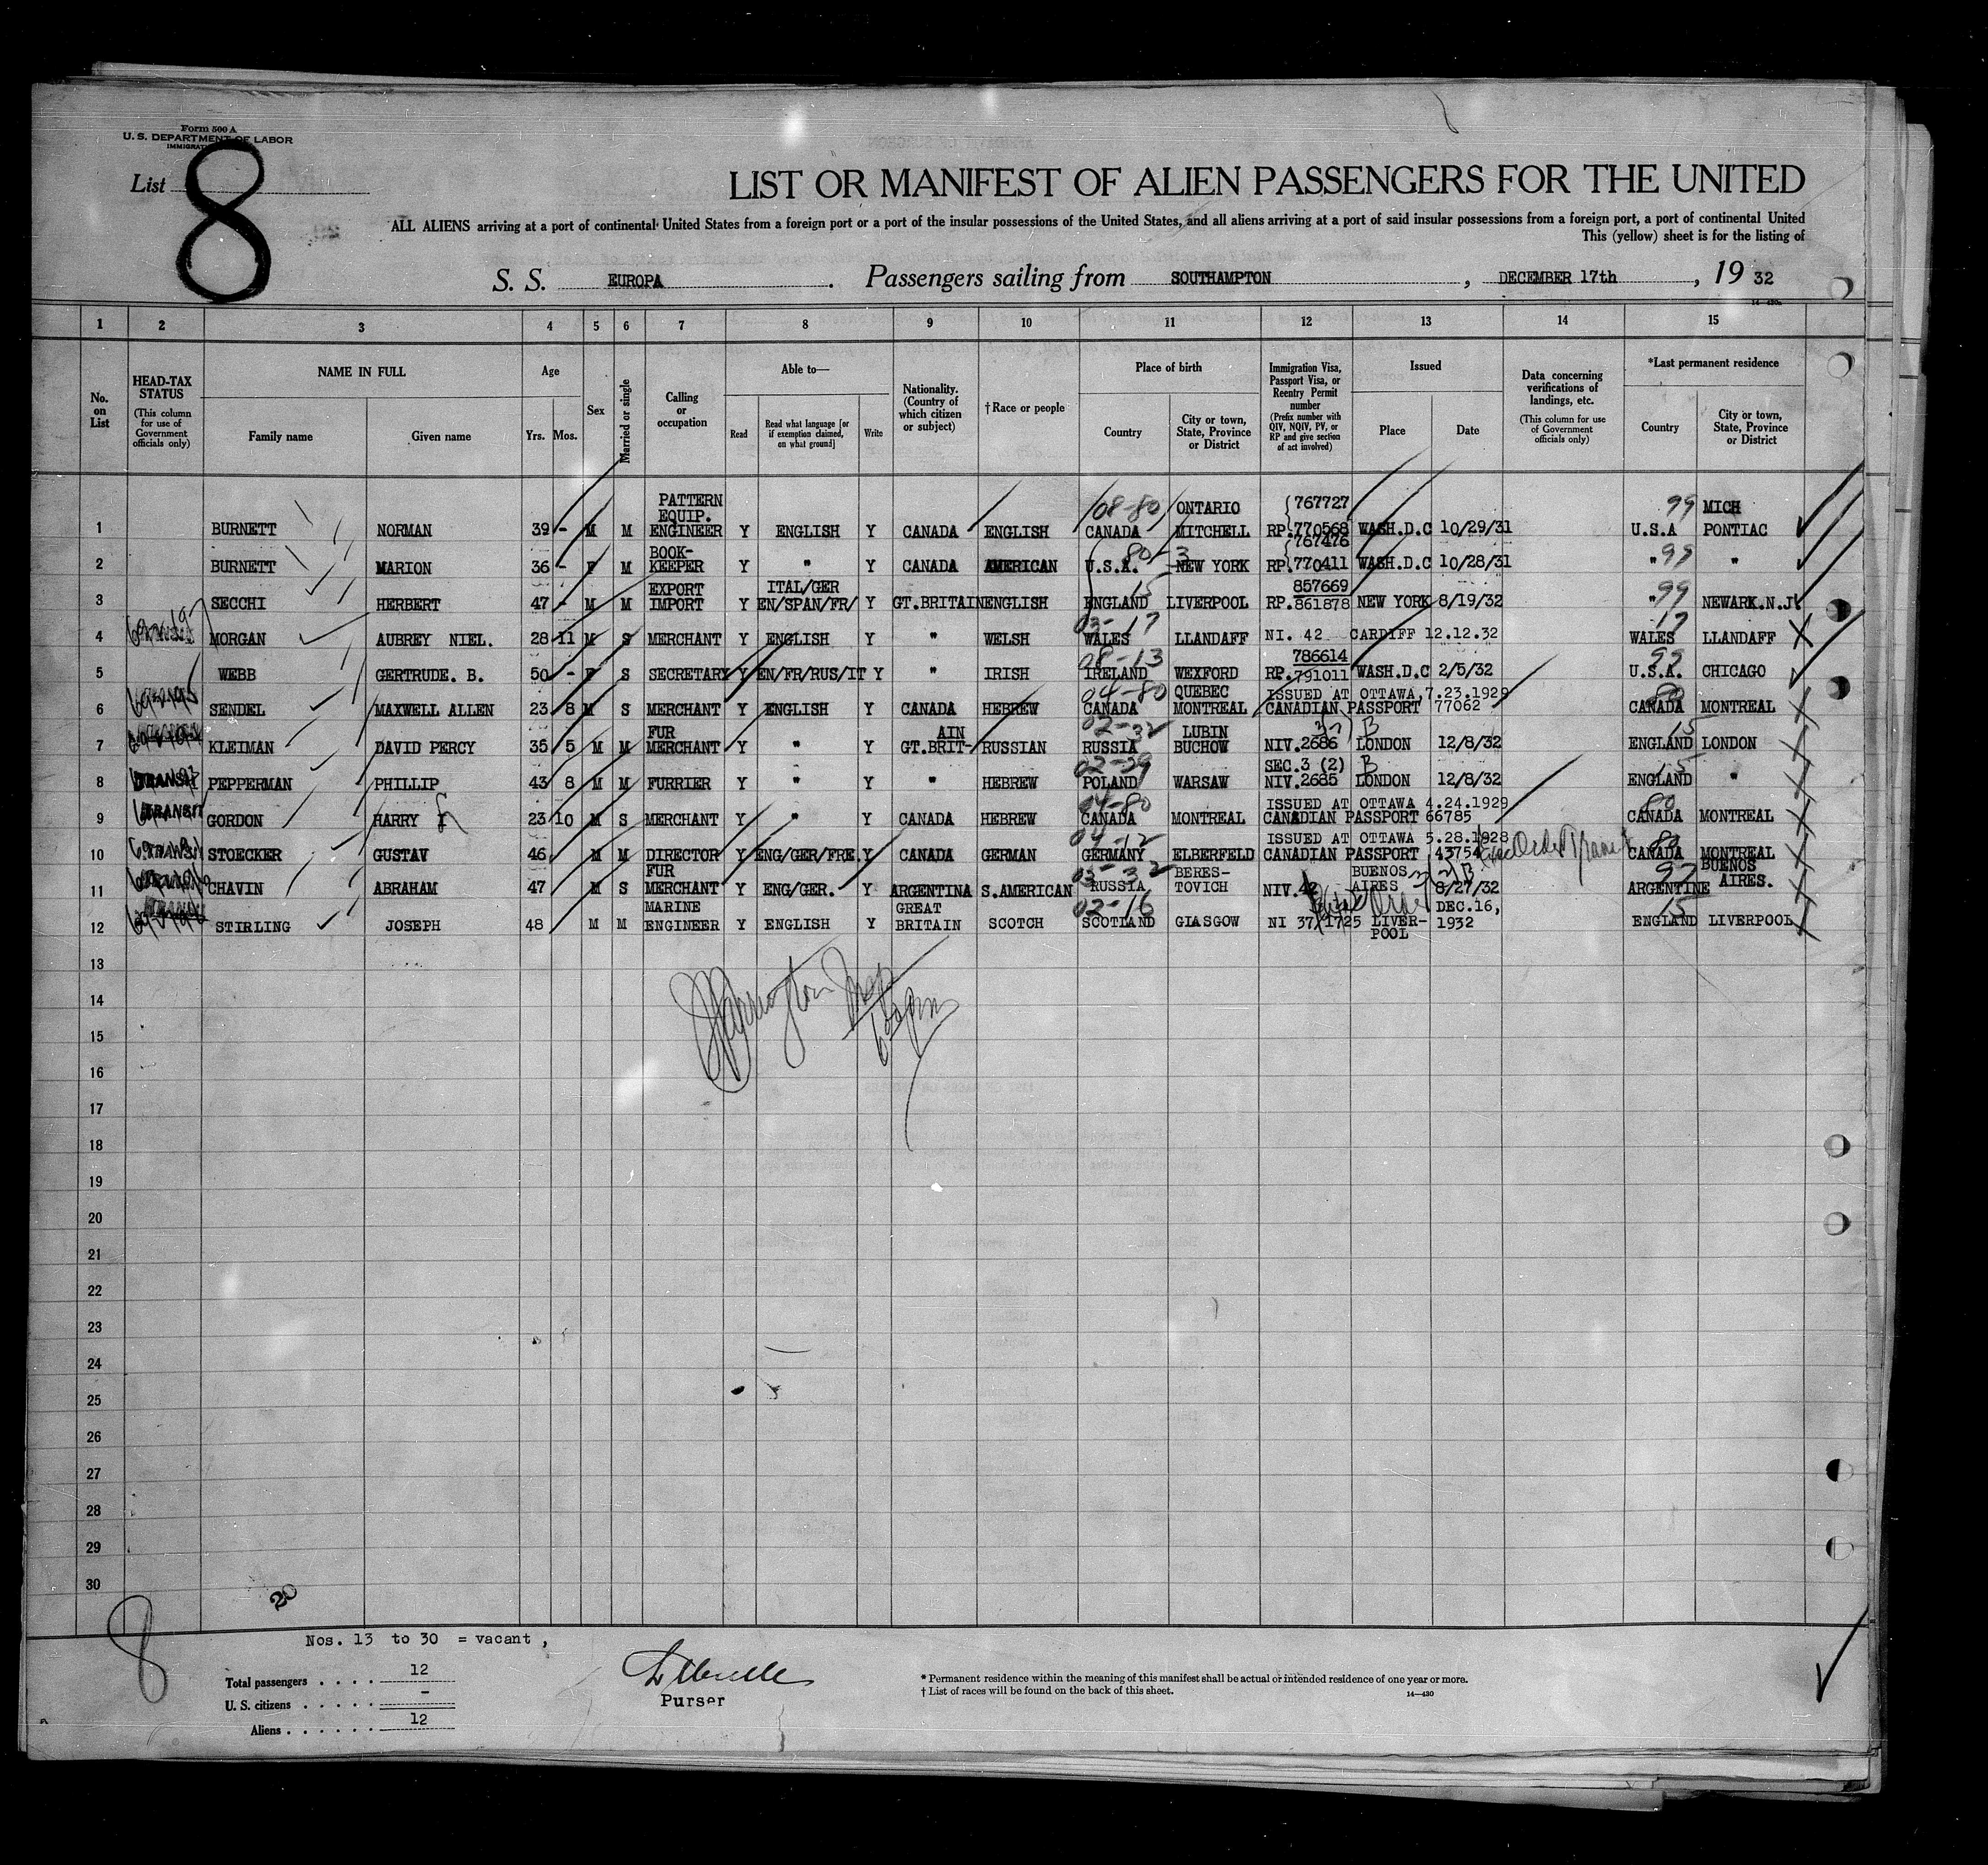 Form 500 A
U. S. DEPARTMENT OF LABOR
List 8
LIST OR MANIFEST OF ALIEN PASSENGERS FOR THE UNITED
ALL ALIENS arriving at a port of continental United States from a foreign port or a port of the insular possessions of the United States, and all aliens arriving at a port of said insular possessions from a foreign port, a port of continental United
This (yellow) sheet is for the listing of
S. S. EUROPA. Passengers sailing from SOUTHAMPTON, DECEMBER 17th, 19 32
14—430a
1 2 3 4 5 6 7 8 9 10 11 12 13 14 15
No. on List
HEAD-TAX STATUS (This column for use of Government officials only)
NAME IN FULL Family name Given name
Age Yrs. Mos.
Sex
Married or single
Calling or occupation
Able to— Read Read what language [or if exemption claimed, on what ground] Write
Nationality. (Country of which citizen or subject)
†Race or people
Place of birth Country City or town, State, Province or District
Immigration Visa, Passport Visa, or Reentry Permit number (Prefix number with QIV, NQIV, PV, or RP and give section of act involved)
Issued Place Date
Data concerning verifications of landings, etc. (This column for use of Government officials only)
*Last permanent residence Country City or town, State, Province or District
1 BURNETT NORMAN 39 - M M PATTERN EQUIP. ENGINEER Y ENGLISH Y CANADA ENGLISH 08-80 CANADA ONTARIO MITCHELL 767727 RP. 770568 WASH.D.C 10/29/31 99 U.S.A MICH PONTIAC
2 BURNETT MARION 36 - F M BOOK-KEEPER Y " Y CANADA AMERICAN 80-3 U.S.A. NEW YORK 767476 RP. 770411 WASH.D.C 10/28/31 " 99 "
3 SECCHI HERBERT 47 - M M EXPORT IMPORT Y ITAL/GER EN/SPAN/FR/ Y GT.BRITAIN ENGLISH 15 ENGLAND LIVERPOOL 857669 RP.861878 NEW YORK 8/19/32 " 99 NEWARK.N.J.
4 MORGAN AUBREY NIEL. 28 11 M S MERCHANT Y ENGLISH Y " WELSH 03-17 WALES LLANDAFF NI. 42 CARDIFF 12.12.32 17 WALES LLANDAFF
5 WEBB GERTRUDE. B. 50 - F S SECRETARY Y EN/FR/RUS/IT Y " IRISH 08-13 IRELAND WEXFORD 786614 RP.791011 WASH.D.C 2/5/32 99 U.S.A. CHICAGO
6 SENDEL MAXWELL ALLEN 23 8 M S MERCHANT Y ENGLISH Y CANADA HEBREW 04-80 CANADA QUEBEC MONTREAL ISSUED AT OTTAWA, 7.23.1929 CANADIAN PASSPORT 77062 80 CANADA MONTREAL
7 KLEIMAN DAVID PERCY 35 5 M M FUR MERCHANT Y " Y GT.BRIT-AIN RUSSIAN 02-32 RUSSIA LUBIN BUCHOW 3 2) B NIV.2686 LONDON 12/8/32 15 ENGLAND LONDON
8 TRANSIT PEPPERMAN PHILLIP 43 8 M M FURRIER Y " Y " HEBREW 02-29 POLAND WARSAW SEC.3 (2) B NIV.2685 LONDON 12/8/32 15 ENGLAND "
9 TRANSIT GORDON HARRY 23 10 M S MERCHANT Y " Y CANADA HEBREW 04-80 CANADA MONTREAL ISSUED AT OTTAWA 4.24.1929 CANADIAN PASSPORT 66785 80 CANADA MONTREAL
10 STOECKER GUSTAV 46 M M DIRECTOR Y ENG/GER/FRE. Y CANADA GERMAN 04-12 GERMANY ELBERFELD ISSUED AT OTTAWA 5.28.1928 CANADIAN PASSPORT 43754 80 CANADA MONTREAL
11 CHAVIN ABRAHAM 47 M S FUR MERCHANT Y ENG/GER. Y ARGENTINA S.AMERICAN 03-32 RUSSIA BERES-TOVICH NIV.42 BUENOS AIRES 3 2) B 8/27/32 97 ARGENTINE BUENOS AIRES.
12 STIRLING JOSEPH 48 M M MARINE ENGINEER Y ENGLISH Y GREAT BRITAIN SCOTCH 02-16 SCOTLAND GLASGOW NI 37/1725 LIVER-POOL DEC.16, 1932 15 ENGLAND LIVERPOOL
13
14
15
16
17
18
19
20
21
22
23
24
25
26
27
28
29
30
20
8
Nos. 13 to 30 = vacant ,
Total passengers . . . . 12
U. S. citizens . . . . . -
Aliens . . . . . . 12
Purser
* Permanent residence within the meaning of this manifest shall be actual or intended residence of one year or more.
† List of races will be found on the back of this sheet.
14—430